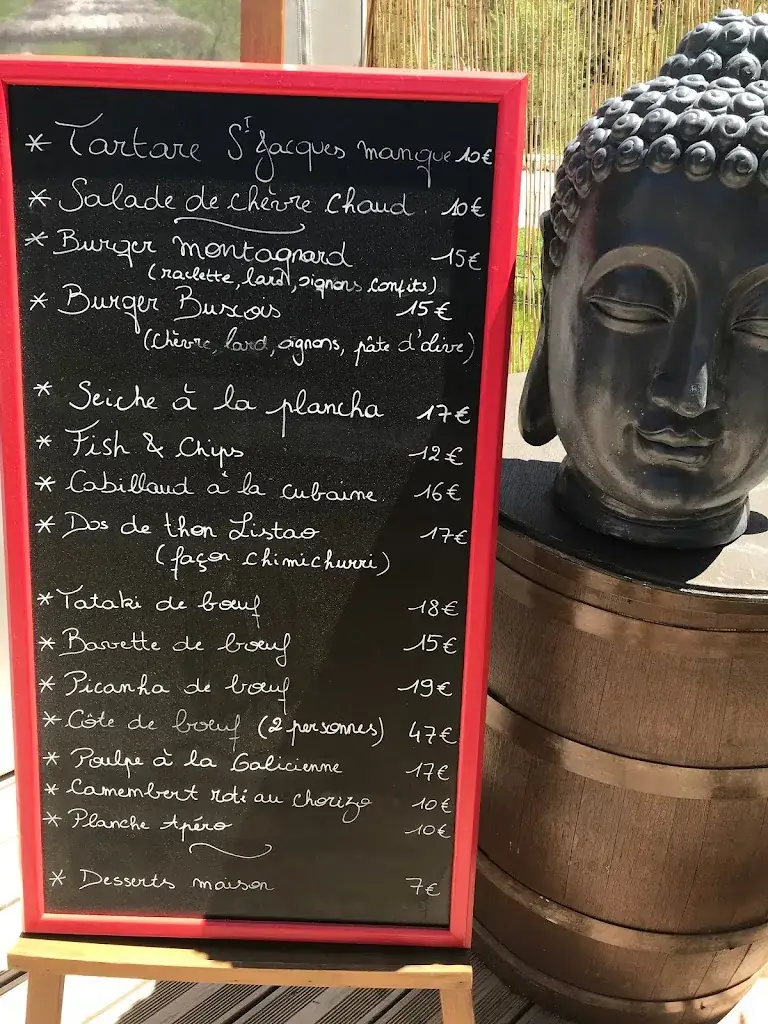 * Tartare St Jacques mangue 10€
* Salade de chèvre chaud. 10€
* Burger montagnard 15€
(raclette, lard, oignons confits)
* Burger Buscois 15€
(chèvre, lard, oignons, pâte d'olive)
* Seiche à la plancha 17€
* Fish & Chips 12€
* Cabillaud à la cubaine. 16€
* Dos de thon Listao 17€
(façon chimichurri)
* Tataki de bœuf 18€
* Bavette de bœuf 15€
* Picanha de bœuf 19€
* Côte de bœuf (2 personnes) 47€
* Poulpe à la Galicienne 17€
* Camembert roti au chorizo 10€
* Planche Apéro 10€
* Desserts maison 7€